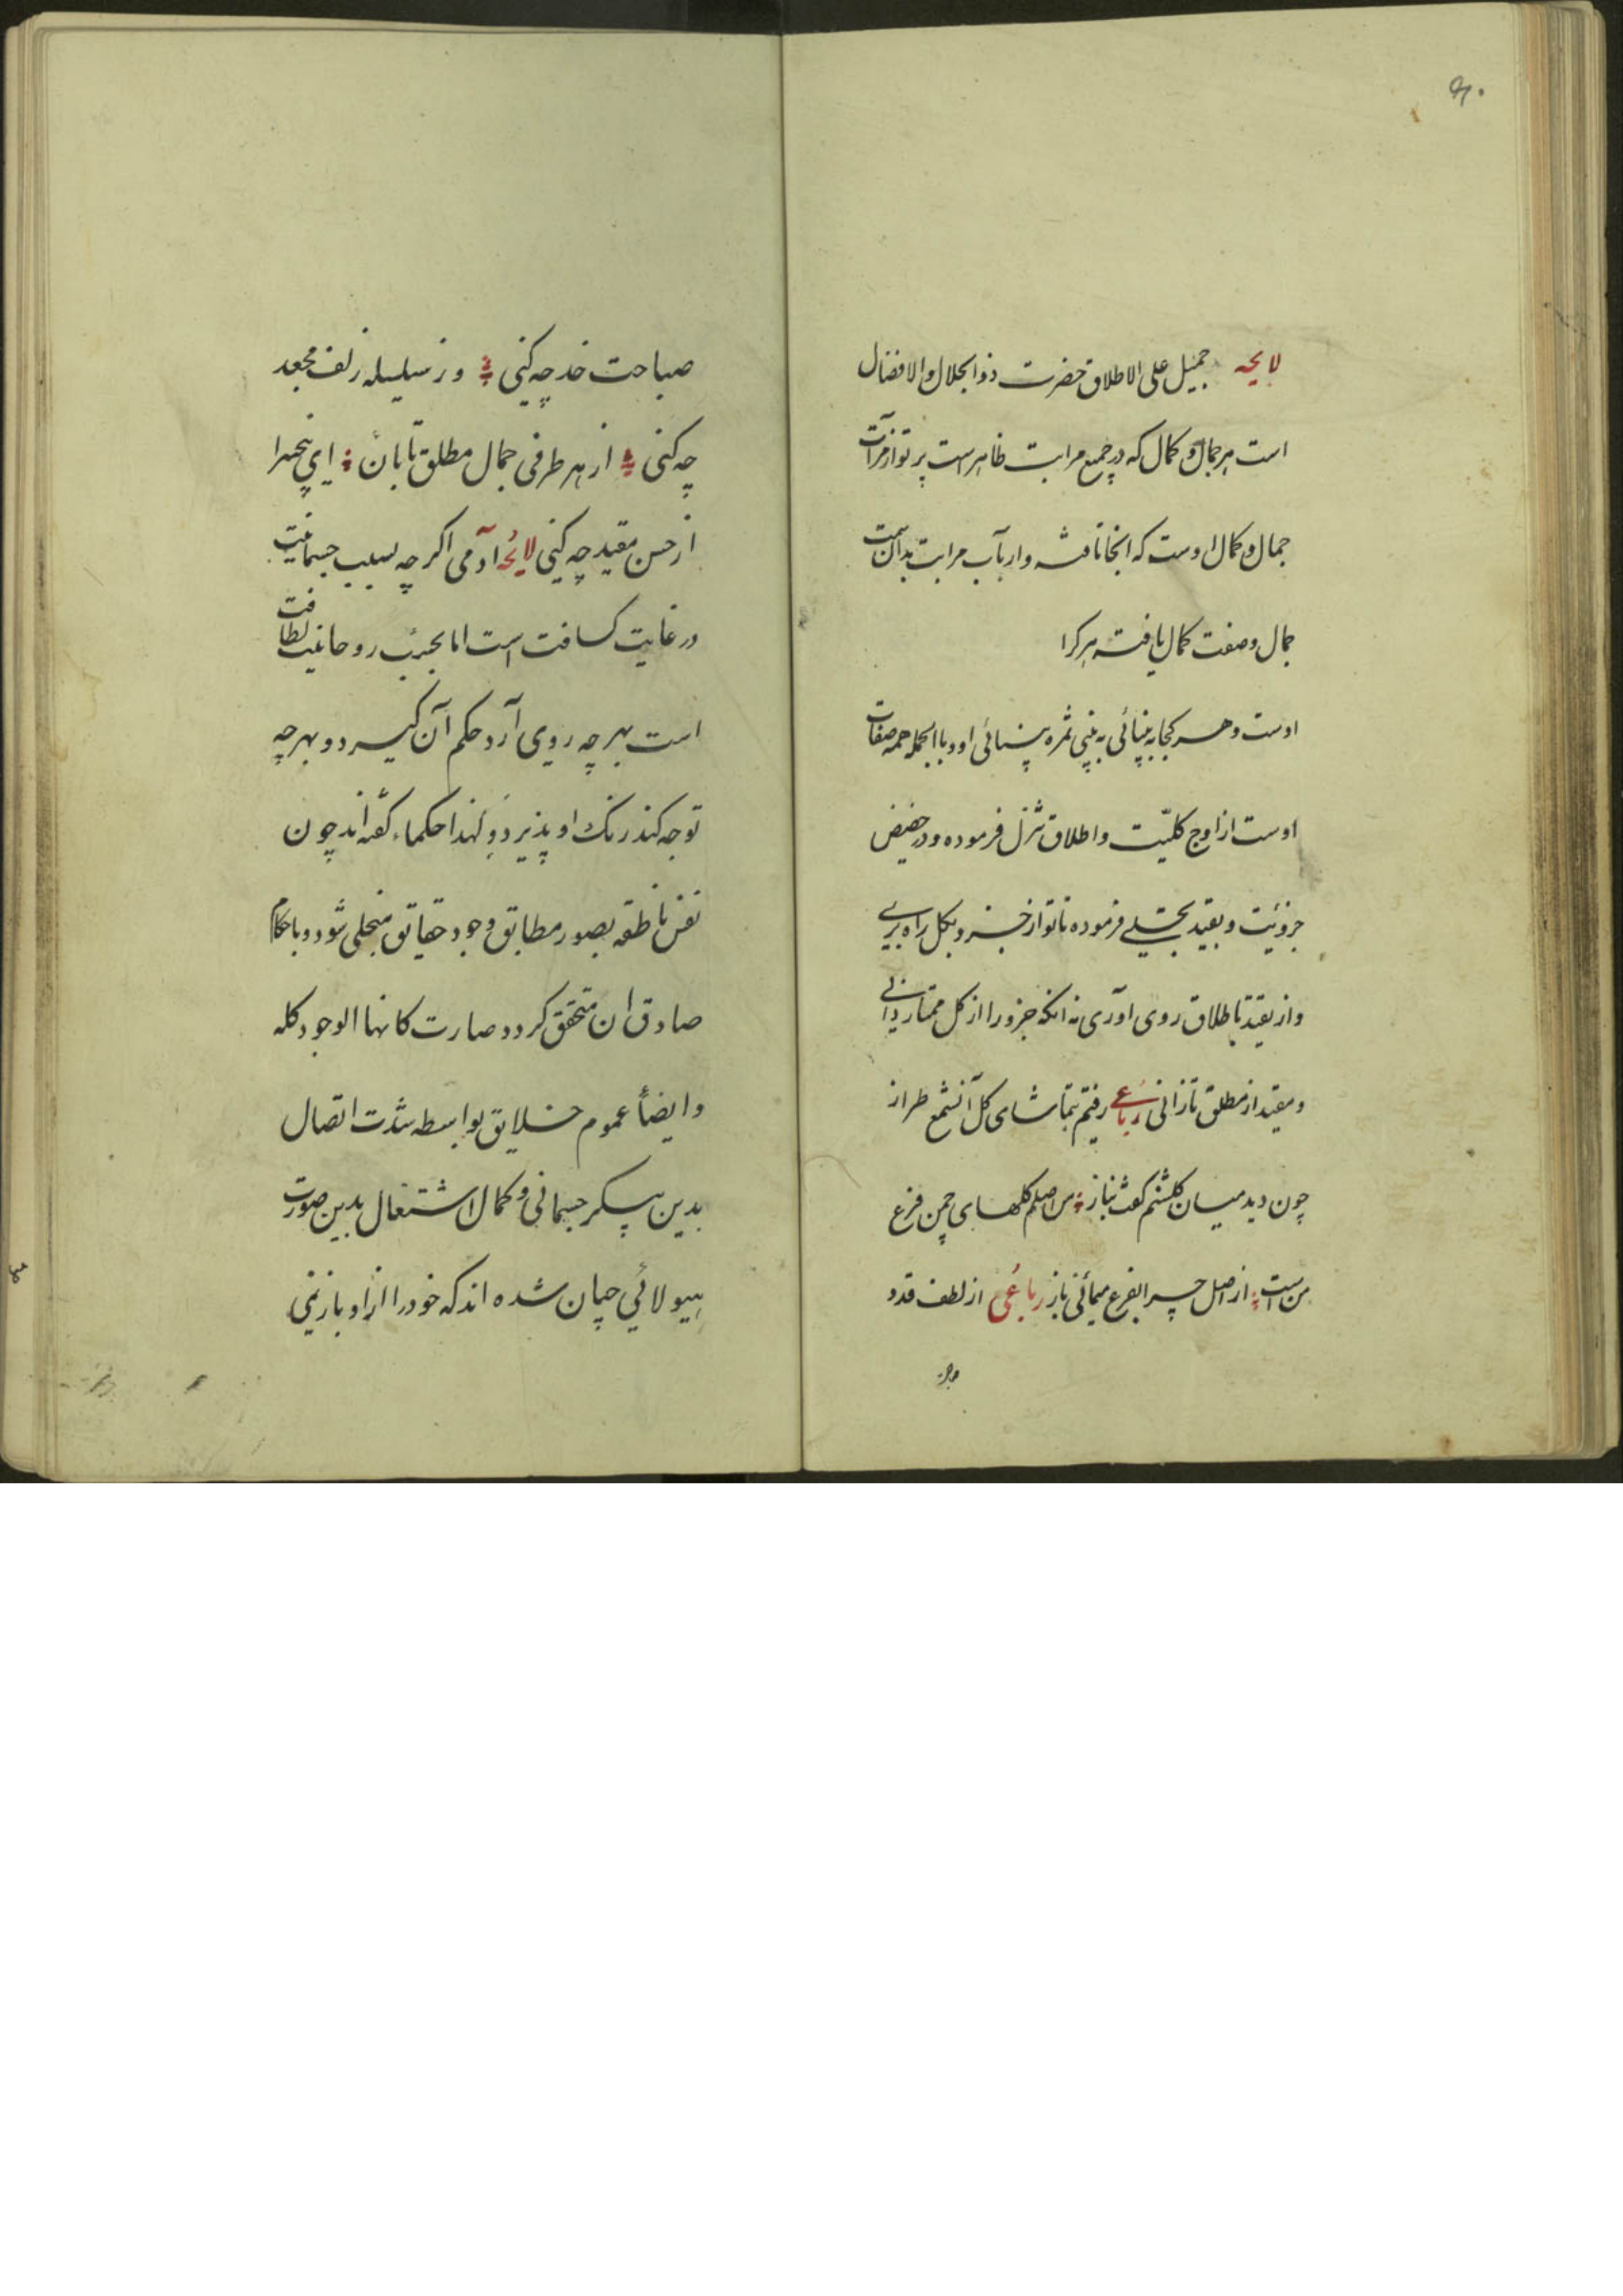 لایحه جمیل علی الاطلاق حضرت ذوالجلال والافضال
است هر جمال و کمال که در جمیع مراتب ظاهر است پرتو از مرآت
جمال و کمال اوست که انجا تافته وارباب مراتب بدان سمت
جمال وصفت کمال یافته هر کرا
اوست و هر کجا به بینائی به بینی ثمره بینائی او و بالجمله همه صفات
اوست از اوج کلیّت و اطلاق تنزل فرموده و در حضیض
جزوئیت و بقید تجلی فرموده تا تو از جزو بکل راه بری
و از تقید باطلاق روی آوری نه انکه جزو را از کل ممتاز دانی
و مقید از مطلق باز انی رباعی رفتم بتماشای کل آنشمع طراز
چون دید میان کلشنم کفت بناز من اصلم کلهای چمن فرع
من است از اصل چرا بفرع میمانی باز رباعی از لطف قد و
صباحت خد چه کنی وز سلسله زلف مجعد
چه کنی از هر طرفی جمال مطلق تابان ای بیخبر
از حسن مقید چه کنی لایحه آدمی اکرچه بسبب جسمانیت
در غایت کسافت است اما بحسب روحانیت لطافت
است بهر چه روی آرد حکم آن کیرد و بهر چه
توجه کند رنک او پذیرد ولهذا حکماء کفته اند چون
نفس ناطقه بصور مطابق وجود حقایق متجلی شود و باحکام
صادق ان متحقق کردد صارت کانها الوجود کله
وایضاً عموم خلایق بواسطه شدت اتصال
بدین پیکر جسمانی و کمال اشتغال بدین صورت
هیولائی چنان شده اند که خود را از او باز نمی